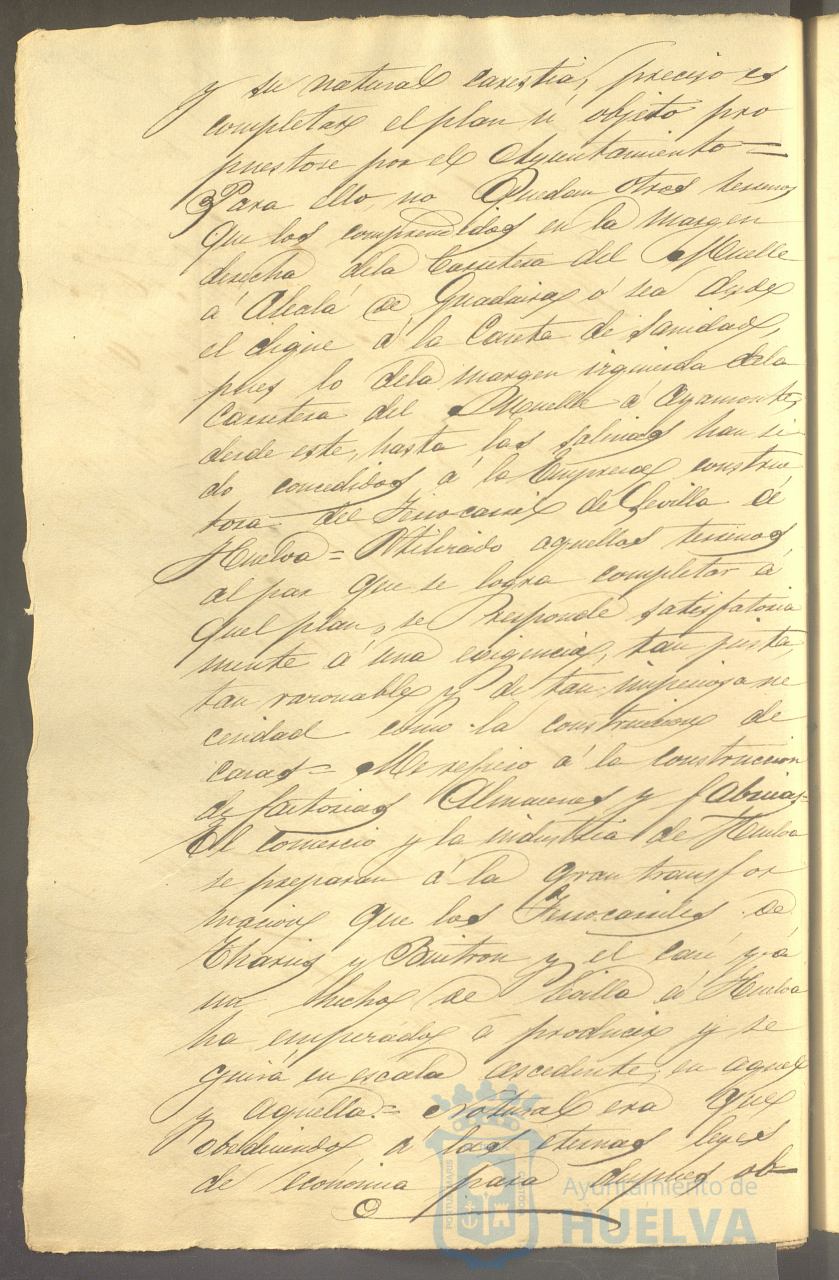 y su natural carestia, preciso es
completar el plan u objeto pro
puestose por el Ayuntamiento =
Para ello no Quedan otros terrenos
que los comprendidos en la margen
derecha dela Carretera del Muelle
á Alcalá de Guadaira o sea desde
el dique á la Caseta de Sanidad,
pues lo dela margen izquierda dela
Carretera del Muelle á Ayamonte,
desde este, hasta las salinas han si
do concedidos á la Empresa construc
tora del Ferrocarril de Sevilla á
Huelva = Utilizado aquellos terrenos
al par que se logra completar a
quel plan, se Responde satisfatoria
mente á una exigencia, tan justa,
tan razonable y de tan imperiosa ne
cesidad como la construccion de
casas = Me refiero á la construccion
de factorias Almacenes y fabricas =
El comercio y la industria de Huelva
se preparan á la gran transfor
macion que los Ferrocarriles de
Tharsis y Buitron y el casi ya
un hecho de Sevilla á Huelva
ha empezado á producir y se
guirá en escala ascedente, en aquel
y aquella = Natural era que
Obedeciendo a las eternas leyes
de económia para ob-
Ayuntamiento de
HUELVA